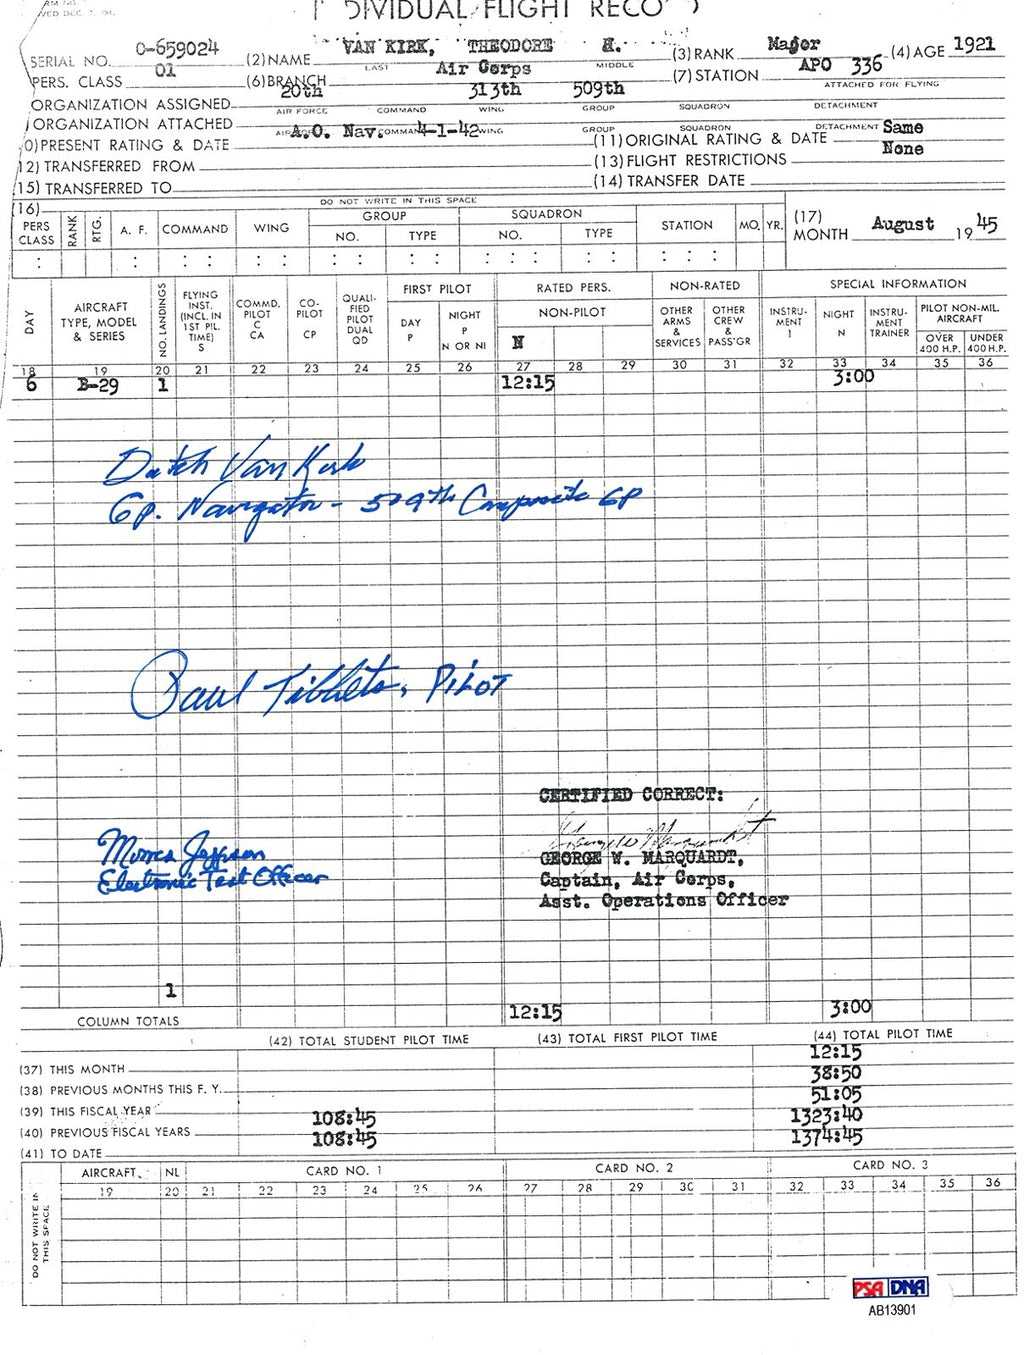 INDIVIDUAL FLIGHT RECORD
SERIAL NO. 0-659024 (2) NAME VAN KIRK, THEODORE (3) RANK Major (4) AGE 1921
LAST MIDDLE
PERS. CLASS 01 (6) BRANCH Air Corps (7) STATION APO 336
ATTACHED FOR FLYING
ORGANIZATION ASSIGNED 20th 313th 509th
AIR FORCE COMMAND WING GROUP SQUADRON DETACHMENT
ORGANIZATION ATTACHED
COMMAND WING GROUP SQUADRON DETACHMENT
(10) PRESENT RATING & DATE A.O. Nav. 4-1-42 (11) ORIGINAL RATING & DATE Same
(12) TRANSFERRED FROM (13) FLIGHT RESTRICTIONS None
(15) TRANSFERRED TO (14) TRANSFER DATE
(16) DO NOT WRITE IN THIS SPACE
PERS CLASS RANK RTG. A. F. COMMAND WING GROUP NO. TYPE SQUADRON NO. TYPE STATION MO. YR. (17) MONTH August 1945
DAY AIRCRAFT TYPE, MODEL & SERIES NO. LANDINGS FLYING INST. (INCL. IN 1ST PIL. TIME) S COMMD. PILOT C CA CO-PILOT CP QUALIFIED PILOT DUAL QD FIRST PILOT DAY P NIGHT P N OR NI RATED PERS. NON-PILOT N NON-RATED OTHER ARMS & SERVICES OTHER CREW & PASS'GR SPECIAL INFORMATION INSTRUMENT I NIGHT N INSTRUMENT TRAINER PILOT NON-MIL. AIRCRAFT OVER 400 H.P. UNDER 400 H.P.
18 19 20 21 22 23 24 25 26 27 28 29 30 31 32 33 34 35 36
6 B-29 1 12:15 3:00
Dutch Van Kirk
Gp. Navigator - 509th Composite Gp
Paul Tibbets, PILOT
CERTIFIED CORRECT:
Morris Jeppson
GEORGE W. MARQUARDT,
Electronic Test Officer
Captain, Air Corps,
Asst. Operations Officer
1
COLUMN TOTALS 12:15 3:00
(42) TOTAL STUDENT PILOT TIME (43) TOTAL FIRST PILOT TIME (44) TOTAL PILOT TIME
(37) THIS MONTH 12:15
(38) PREVIOUS MONTHS THIS F. Y. 38:50
(39) THIS FISCAL YEAR 51:05
(40) PREVIOUS FISCAL YEARS 108:45 1323:40
(41) TO DATE 108:45 1374:45
DO NOT WRITE IN THIS SPACE
AIRCRAFT NL CARD NO. 1 CARD NO. 2 CARD NO. 3
19 20 21 22 23 24 25 26 27 28 29 30 31 32 33 34 35 36
PSA DNA
AB13901